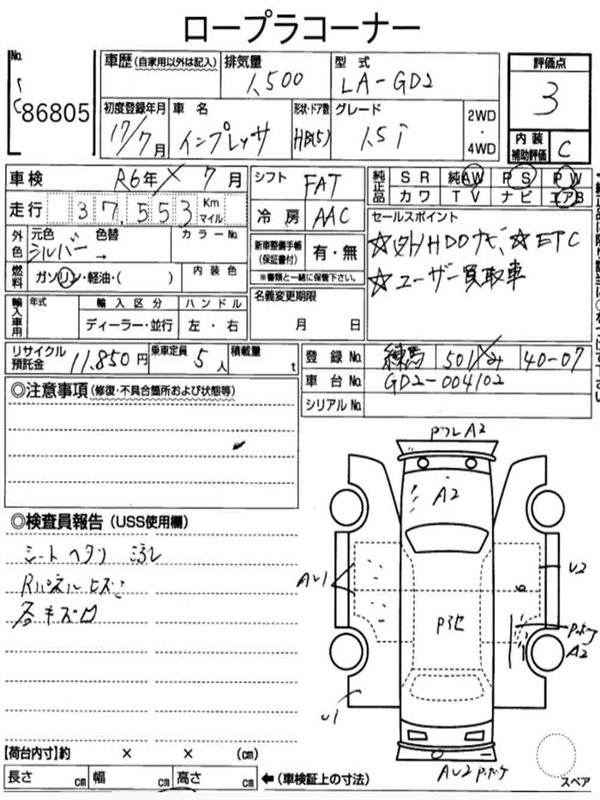 ロープラコーナー
No. 86805
車歴 (自家用以外は記入) 排気量 1,500 型式 LA-GD2 評価点 3
初度登録年月 17/7月 車名 インプレッサ 形状・ドア数 HB(5) グレード 1.5i 2WD・4WD 内装補助評価 C
車検 R6年 7月 シフト FAT 純正品 SR 純AW PS PW
カワ TV ナビ エアB
走行 37,553 Km マイル 冷房 AAC
セールスポイント
外色 元色 シルバー 色替 → カラーNo.
新車整備手帳 (保証書付) 有・無
※書類と一緒に保管下さい。
☆社外HDDナビ、☆ETC
☆ユーザー買取車
燃料 ガソリン・軽油・( ) 内装色
輸入車用 年式 輸入区分 ハンドル
ディーラー・並行 左・右
名義変更期限
月 日
リサイクル預託金 11,850円 乗車定員 5人 積載量 t
登録No. 練馬 501 40-07
車台No. GD2-004102
シリアルNo.
◎注意事項 (修復・不具合箇所および状態等)
◎検査員報告 (USS使用欄)
シートヘタリ
Rパネルヒズミ
各キズ凹
A2
A2
AU1
U2
A2
U1
AU2
スペア
【荷台内寸】約 × × (cm)
長さ cm 幅 cm 高さ cm ←(車検証上の寸法)